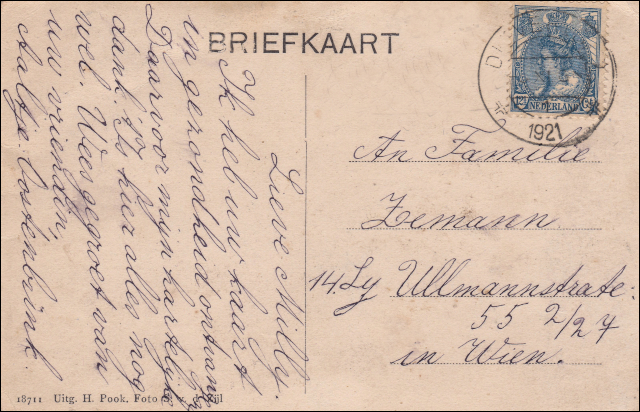 BRIEFKAART
Lieve Milly.
Ik heb uw kaart
in gezondheid ontvang
Daarvoor mijn hartelijke
dank. Is hier alles nog
wel. Wees gegroet van
uw vrienden,
Aaltje Oostenbrink
NEDERLAND
1921
An Familie
Zemann
14. Ly Ullmannstrate.
55 2/27
in Wien.
18711 Uitg. H. Pook, Foto v. d. Rijl